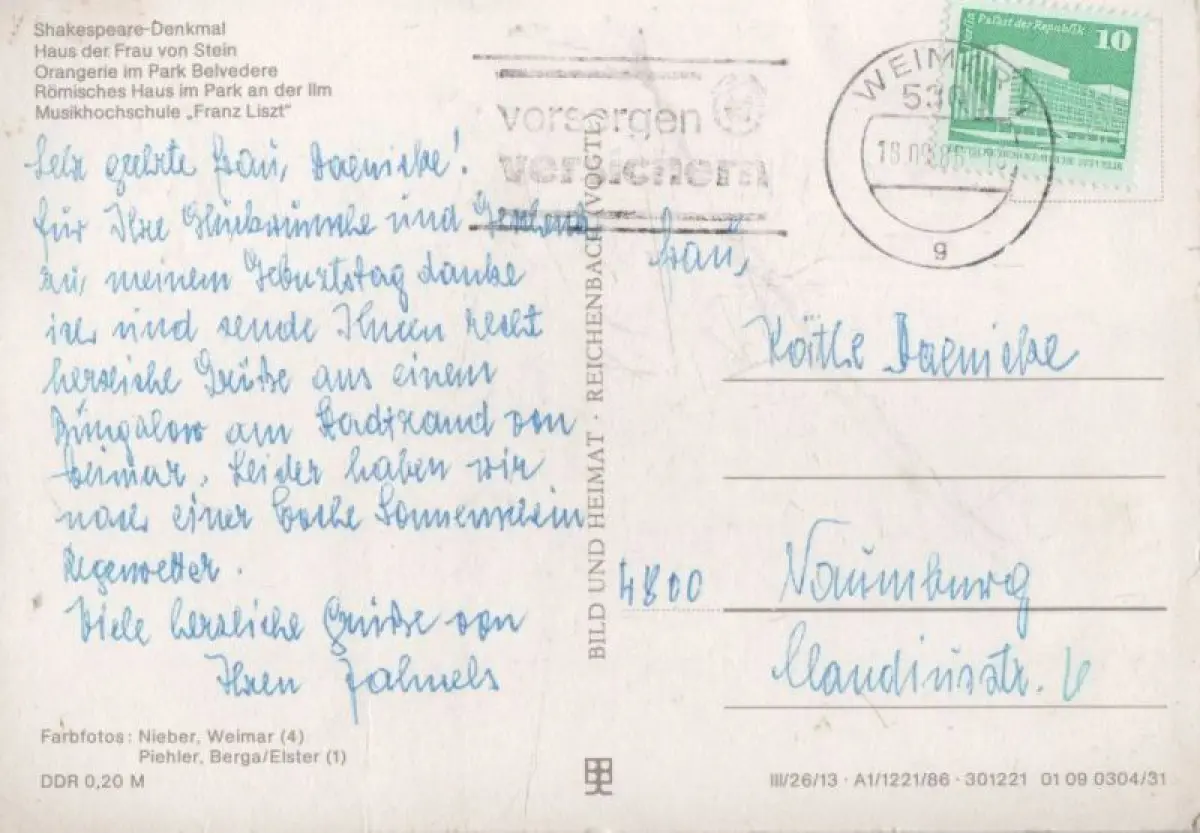 Shakespeare-Denkmal
Haus der Frau von Stein
Orangerie im Park Belvedere
Römisches Haus im Park an der Ilm
Musikhochschule „Franz Liszt"
Sehr geehrte Frau Daenicke!
Für Ihre Glückwünsche und
zu meinem Geburtstag danke
ich und sende Ihnen recht
herzliche Grüße aus einem
Bungalow am Stadtrand von
Weimar. Leider haben wir
nach einer Woche Sonnenschein
Regenwetter.
Viele herzliche Grüße von
Ihren
Farbfotos: Nieber, Weimar (4)
Piehler, Berga/Elster (1)
DDR 0,20 M
BILD UND HEIMAT · REICHENBACH (VOGTL)
vorsorgen
versichern
WEIMAR
g
Palast der Republik
10
Frau
Käthe Daenicke
4800 Naumburg
Claudiusstr. 6
III/26/13 · A1/1221/86 · 301221 01 09 0304/31